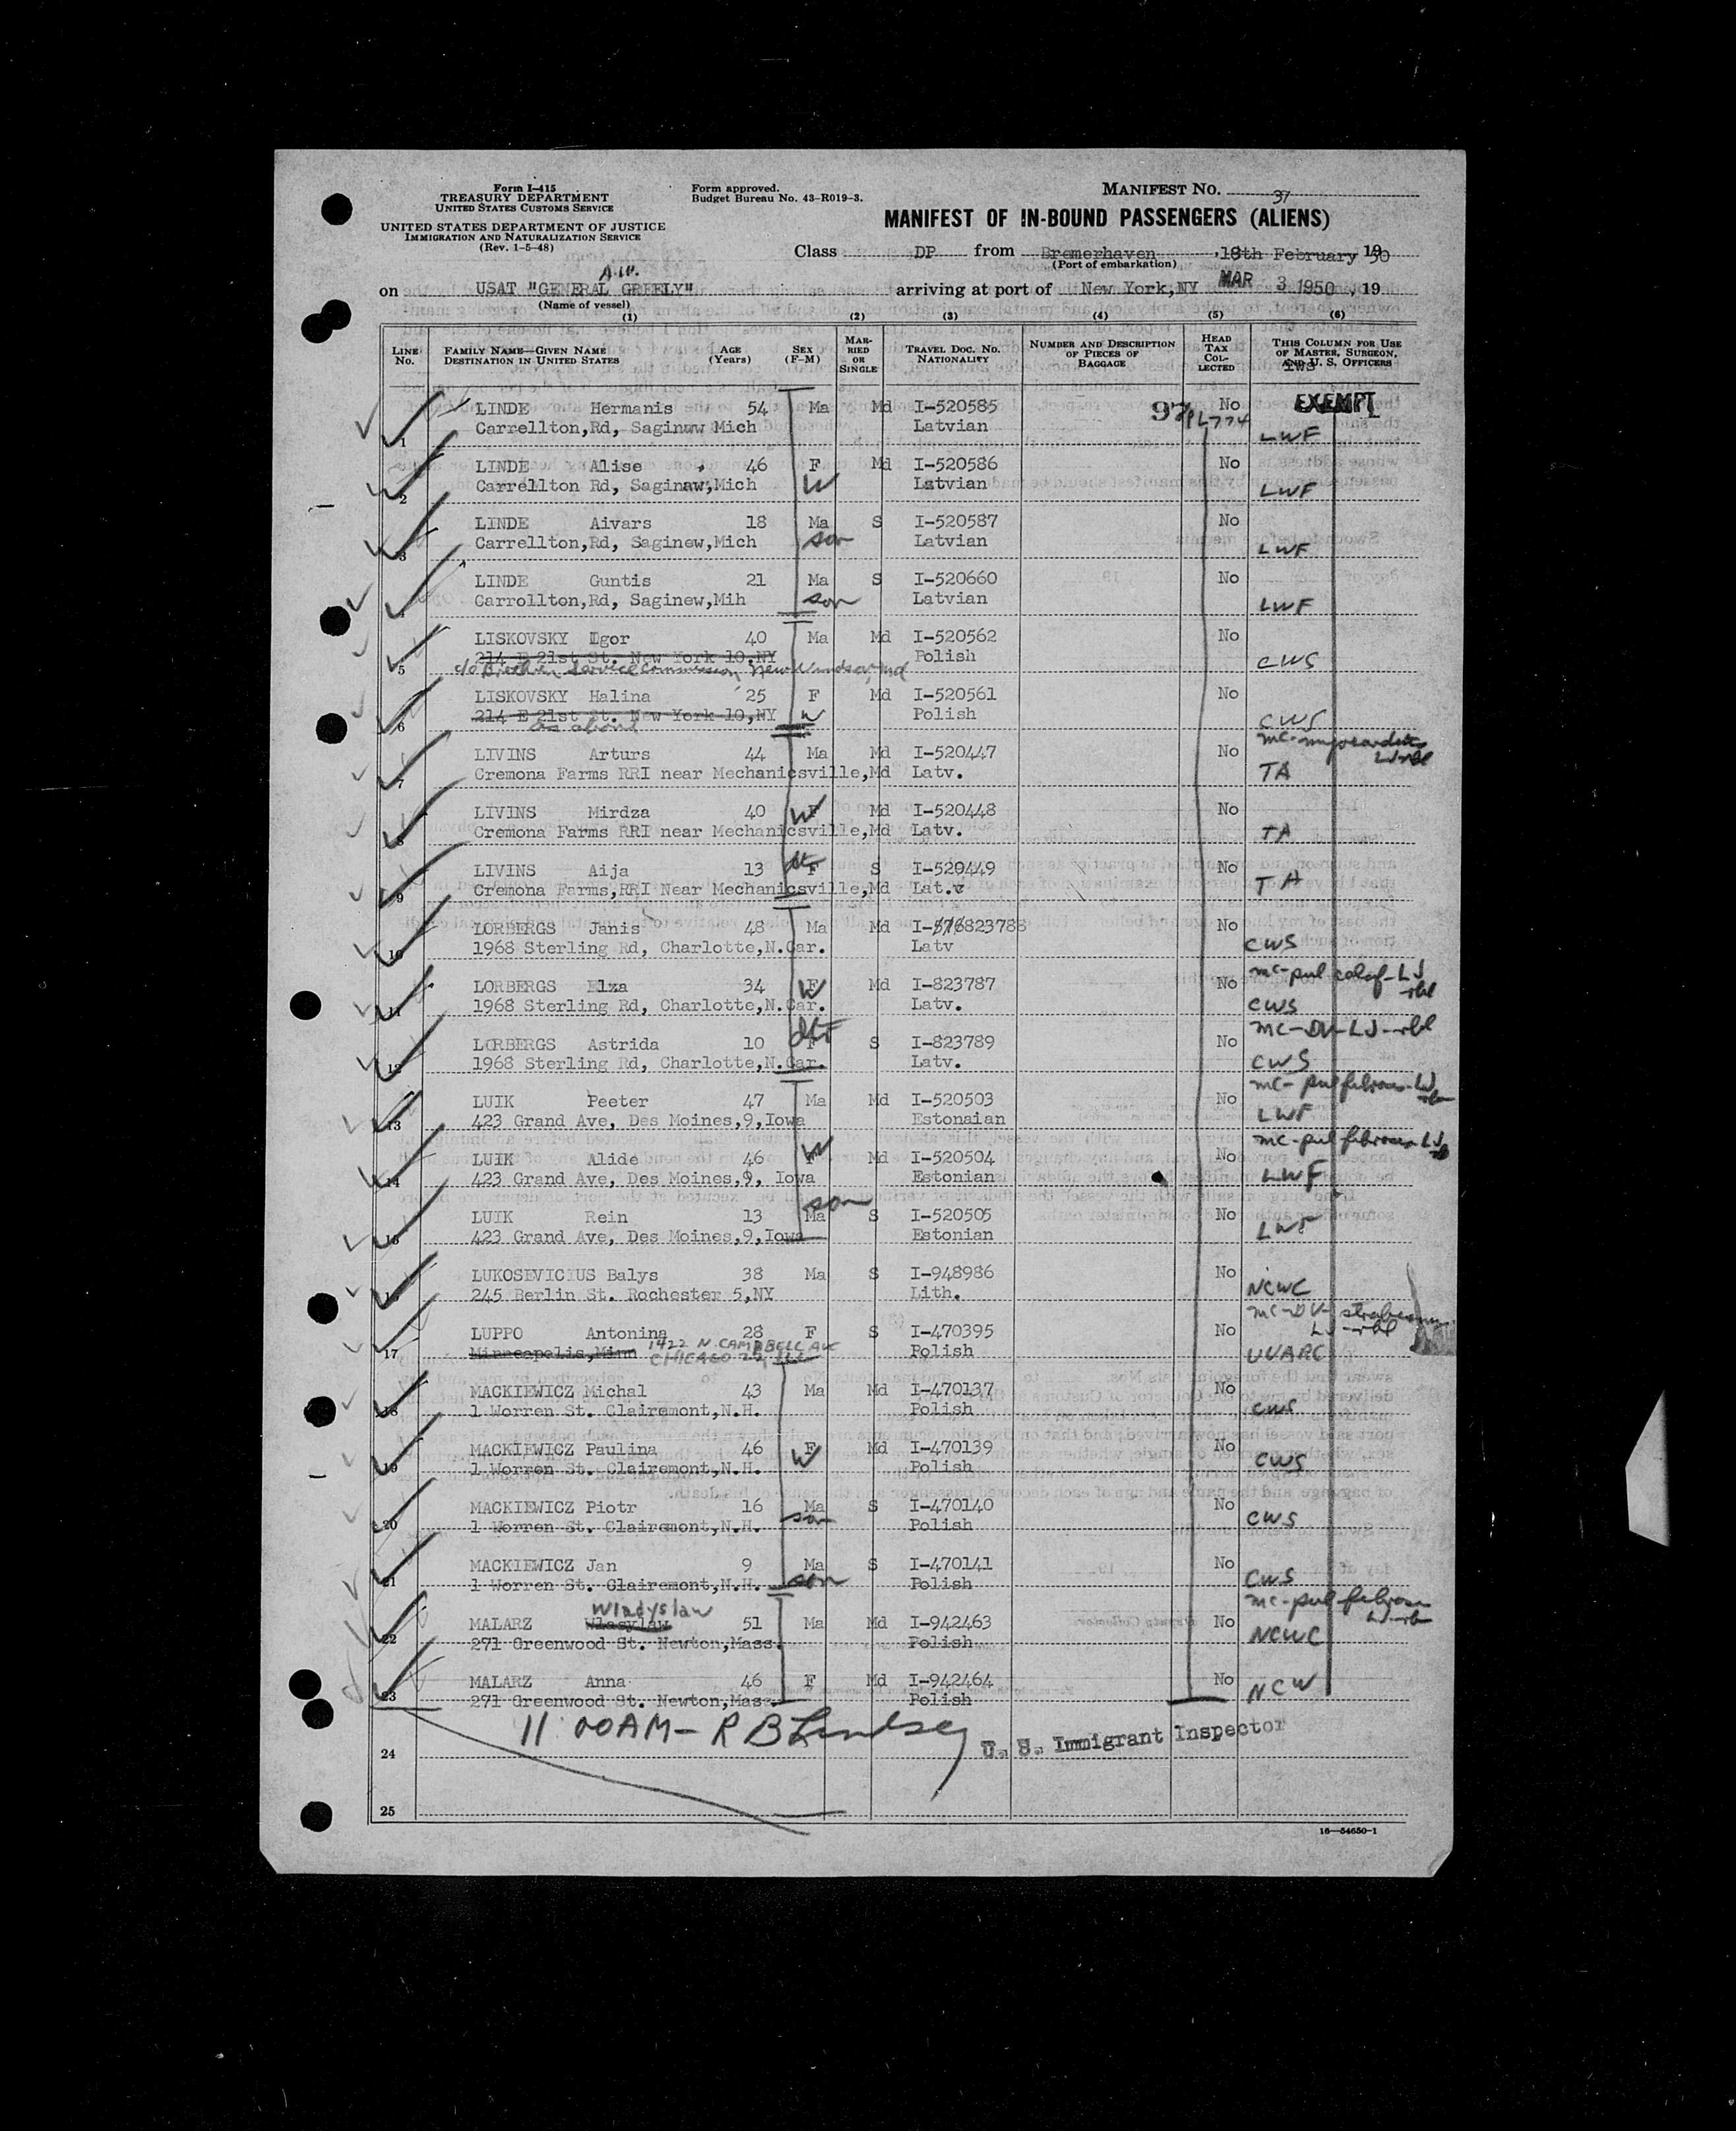 Form I-415
TREASURY DEPARTMENT
UNITED STATES CUSTOMS SERVICE
UNITED STATES DEPARTMENT OF JUSTICE
IMMIGRATION AND NATURALIZATION SERVICE
(Rev. 1-5-48)
Form approved.
Budget Bureau No. 43-R019-3.
MANIFEST NO. 37
MANIFEST OF IN-BOUND PASSENGERS (ALIENS)
Class DP from Bremerhaven, 18th February 1950
(Port of embarkation)
A.W.
on USAT "GENERAL GREELY" arriving at port of New York,NY MAR 3 1950, 19
(Name of vessel)
(1) (2) (3) (4) (5) (6)
LINE No. FAMILY NAME—GIVEN NAME DESTINATION IN UNITED STATES AGE (Years) SEX (F-M) MARRIED OR SINGLE TRAVEL DOC. NO. NATIONALITY NUMBER AND DESCRIPTION OF PIECES OF BAGGAGE HEAD TAX COLLECTED THIS COLUMN FOR USE OF MASTER, SURGEON, AND U. S. OFFICERS
LINDE Hermanis 54 Ma Md I-520585 97 No EXEMPT
PL774
1 Carrellton,Rd, Saginaw Mich Latvian LWF
LINDE Alise 46 F Md I-520586 No
2 Carrellton Rd, Saginaw,Mich W Latvian LWF
LINDE Aivars 18 Ma S I-520587 No
3 Carrellton,Rd, Saginew,Mich son Latvian LWF
LINDE Guntis 21 Ma S I-520660 No
4 Carrollton,Rd, Saginew,Mih son Latvian LWF
LISKOVSKY Igor 40 Ma Md I-520562 No
214 E 21st St. New York 10,NY Polish CWS
5 c/o Brethren Service Commission New Windsor, Md
LISKOVSKY Halina 25 F Md I-520561 No
6 214 E 21st St. New York 10,NY W Polish CWS
as above
LIVINS Arturs 44 Ma Md I-520447 No
7 Cremona Farms RRI near Mechanicsville,Md Latv. TA
LIVINS Mirdza 40 F W Md I-520448 No
8 Cremona Farms RRI near Mechanicsville,Md Latv. TA
LIVINS Aija 13 F S I-520449 No
9 Cremona Farms,RRI Near Mechanicsville,Md Lat.v TA
LORBERGS Janis 48 Ma Md I-823788 No
10 1968 Sterling Rd, Charlotte,N.Car. Latv CWS
LORBERGS Elza 34 F W Md I-823787 No
11 1968 Sterling Rd, Charlotte,N.Car. Latv. CWS
LORBERGS Astrida 10 F S I-823789 No
12 1968 Sterling Rd, Charlotte,N.Car. Latv. CWS
LUIK Peeter 47 Ma Md I-520503 No
13 423 Grand Ave, Des Moines,9,Iowa Estonaian LWF
LUIK Alide 46 F W Md I-520504 No
14 423 Grand Ave, Des Moines,9, Iowa Estonian LWF
LUIK Rein 13 Ma son S I-520505 No
15 423 Grand Ave, Des Moines,9,Iowa Estonian LWF
LUKOSEVICIUS Balys 38 Ma S I-948986 No
16 245 Berlin St. Rochester 5,NY Lith. NCWC
LUPPO Antonina 28 F S I-470395 No
17 Minneapolis,Minn 1422 N. CAMPBELL AVE CHICAGO 22 ILL Polish UUARC
MACKIEWICZ Michal 43 Ma Md I-470137 No
18 1 Worren St. Clairemont,N.H. Polish CWS
MACKIEWICZ Paulina 46 F Md I-470139 No
19 1 Worren St. Clairemont,N.H. W Polish CWS
MACKIEWICZ Piotr 16 Ma S I-470140 No
20 1 Worren St. Clairemont,N.H. son Polish CWS
MACKIEWICZ Jan 9 Ma S I-470141 No
21 1 Worren St. Clairemont,N.H. son Polish CWS
Wladyslaw
MALARZ Wlasylaw 51 Ma Md I-942463 No
22 271 Greenwood St. Newton,Mass. Polish NCWC
MALARZ Anna 46 F Md I-942464 No
23 271 Greenwood St. Newton,Mass. Polish NCW
11:00AM— R B Lindsey U. S. Immigrant Inspector
24
25
16—54650-1